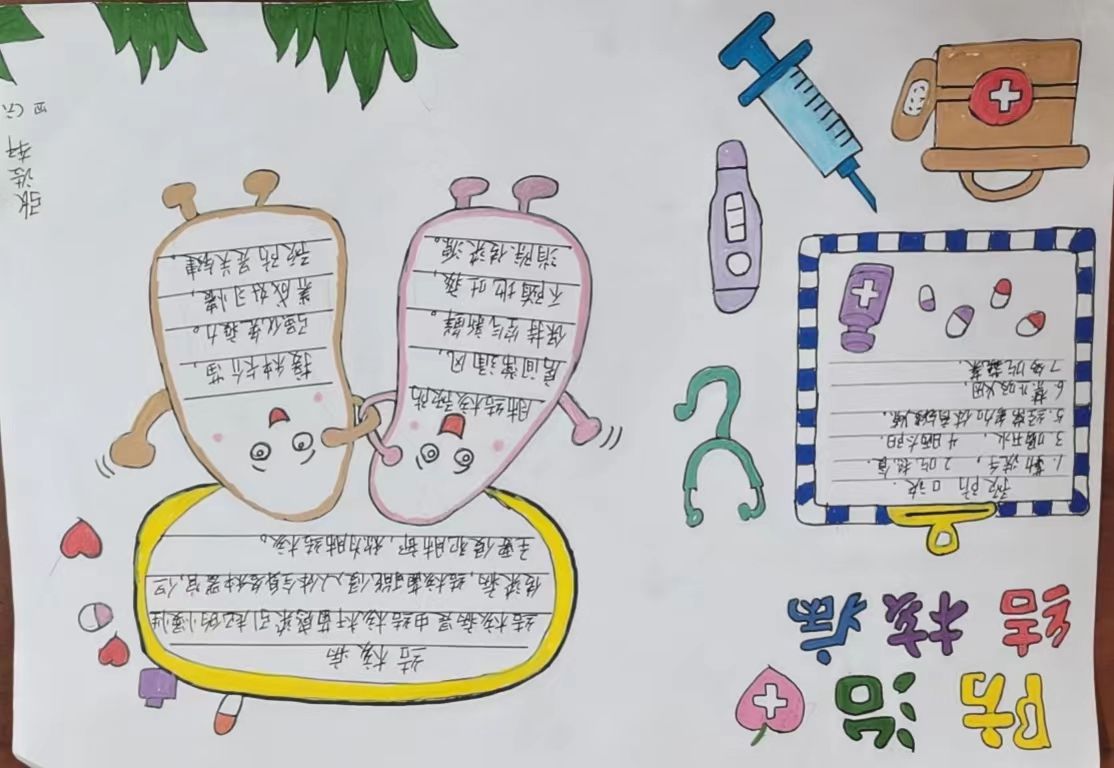 防治
结核病
预防口诀.
1.勤洗手, 2.吃熟食.
3.喝开水, 4.晒太阳.
5.经常参加体育锻炼.
6.禁止吸烟,
7 吃蔬菜.
结核病
结核病是由结核杆菌感染引起的慢性
传染病,结核菌可能侵入人体全身各种器官,但
主要侵犯肺部,称为肺结核。
肺结核预防
房间常通风,
保持空气新鲜。
不随地吐痰,
消除传染源。
接种卡介苗,
强化免疫力。
养成好习惯,
预防是关键。
张
四(六)